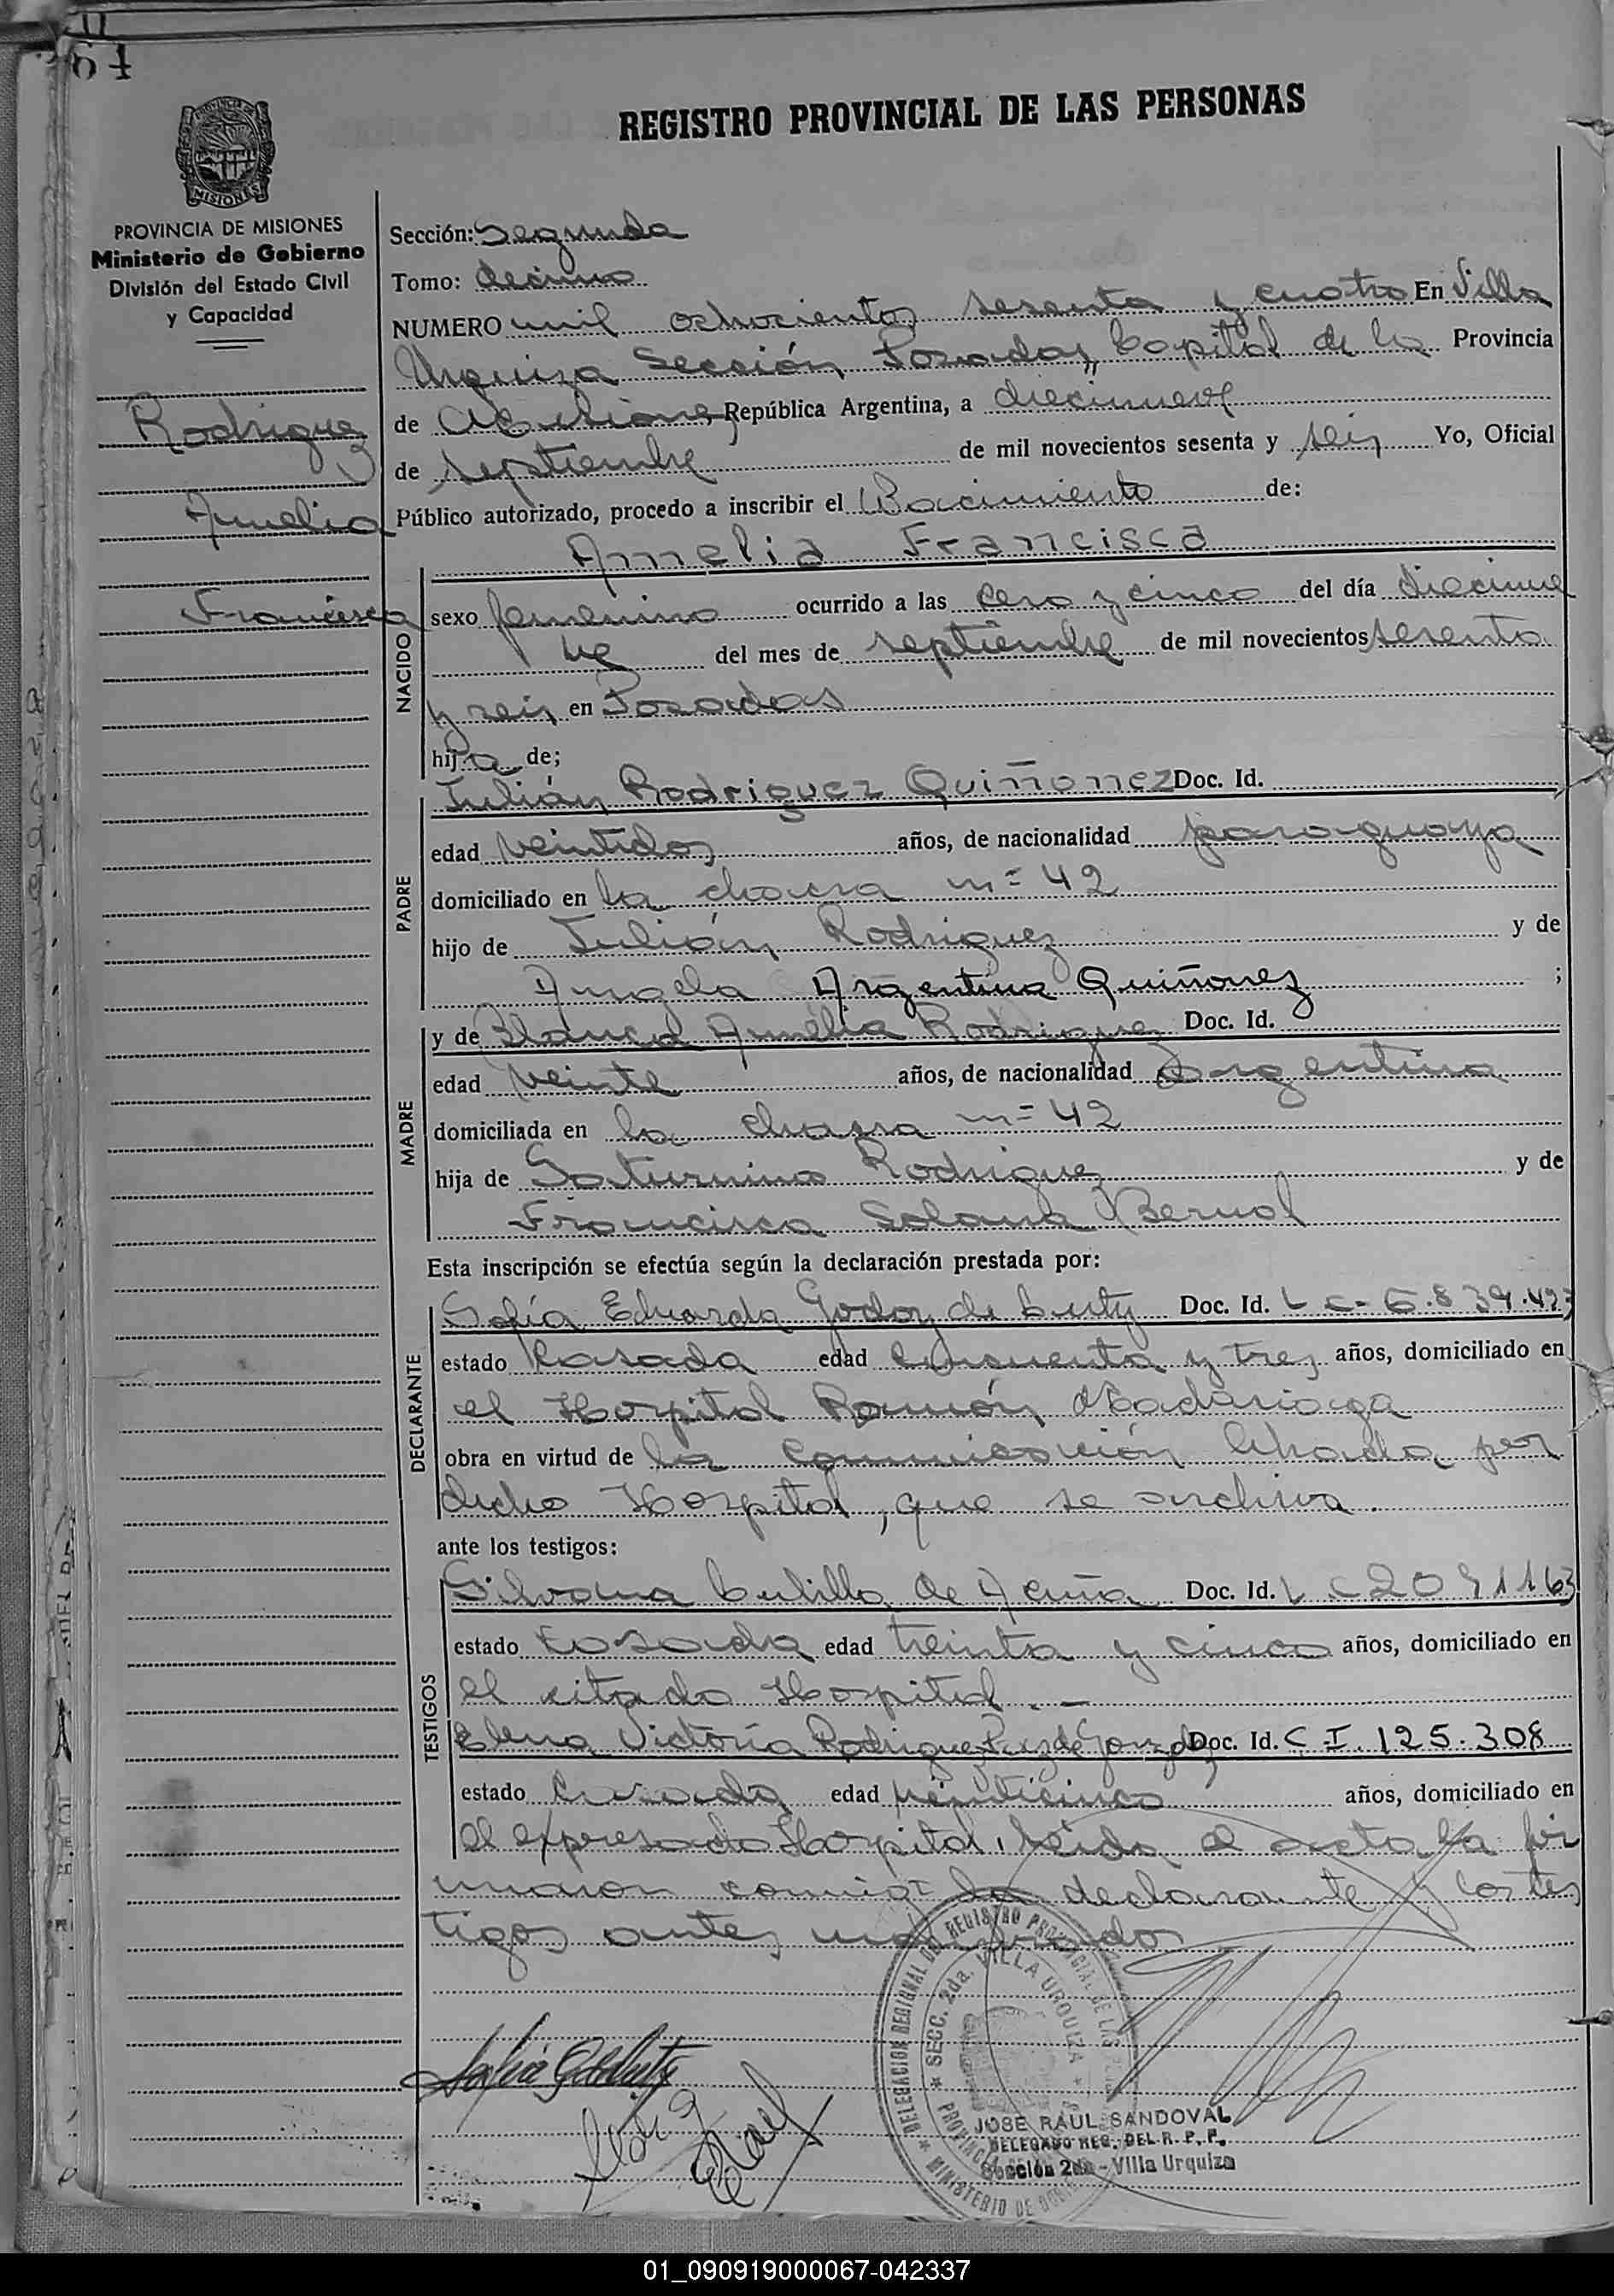 64
REGISTRO PROVINCIAL DE LAS PERSONAS
MISIONES
PROVINCIA DE MISIONES
Ministerio de Gobierno
División del Estado Civil
y Capacidad
Rodriguez
Amelia
Francisca
Sección: Segunda
Tomo: décimo
NUMERO mil ochocientos sesenta y cuatro En Villa
Urquiza Sección Posadas, Capital de la Provincia
de Misiones, República Argentina, a diecinueve
de septiembre de mil novecientos sesenta y seis Yo, Oficial
Público autorizado, procedo a inscribir el Nacimiento de:
Amelia Francisca
NACIDO
sexo femenino ocurrido a las cero y cinco del día diecinue
ve del mes de septiembre de mil novecientos sesenta
y seis en Posadas
hija de;
PADRE
Julián Rodriguez Quiñonez Doc. Id.
edad veintidos años, de nacionalidad paraguaya
domiciliado en la chacra nº 42
hijo de Julián Rodriguez y de
Angela Argentina Quiñonez ;
MADRE
y de Blanca Amelia Rodriguez Doc. Id.
edad veinte años, de nacionalidad Argentina
domiciliada en la chacra nº 42
hija de Saturnino Rodriguez y de
Francisca Solana Bernal
Esta inscripción se efectúa según la declaración prestada por:
DECLARANTE
Sofía Eduarda Godoy de Doc. Id. L C- 6.839.423
estado Casada edad cincuenta y tres años, domiciliado en
el Hospital Ramón Madariaga
obra en virtud de la comunicación librada por
dicho Hospital, que se archiva.
ante los testigos:
TESTIGOS
Silvana de Acuña Doc. Id. L C 2091163
estado casada edad treinta y cinco años, domiciliado en
el citado Hospital.-
Elena Victoria Rodriguez de Doc. Id. C.I. 125.308
estado Casada edad veinticinco años, domiciliado en
el expresado Hospital, leida el acta la fir
maron conmigo la declarante y los tes
tigos antes nombrados
DELEGACION REGIONAL DEL REGISTRO PROVINCIAL DE LAS
SECC. 2da. VILLA URQUIZA
MINISTERIO DE
JOSE RAUL SANDOVAL
DELEGADO REG. DEL R. P. P.
Sección 2da - Villa Urquiza
01_090919000067-042337